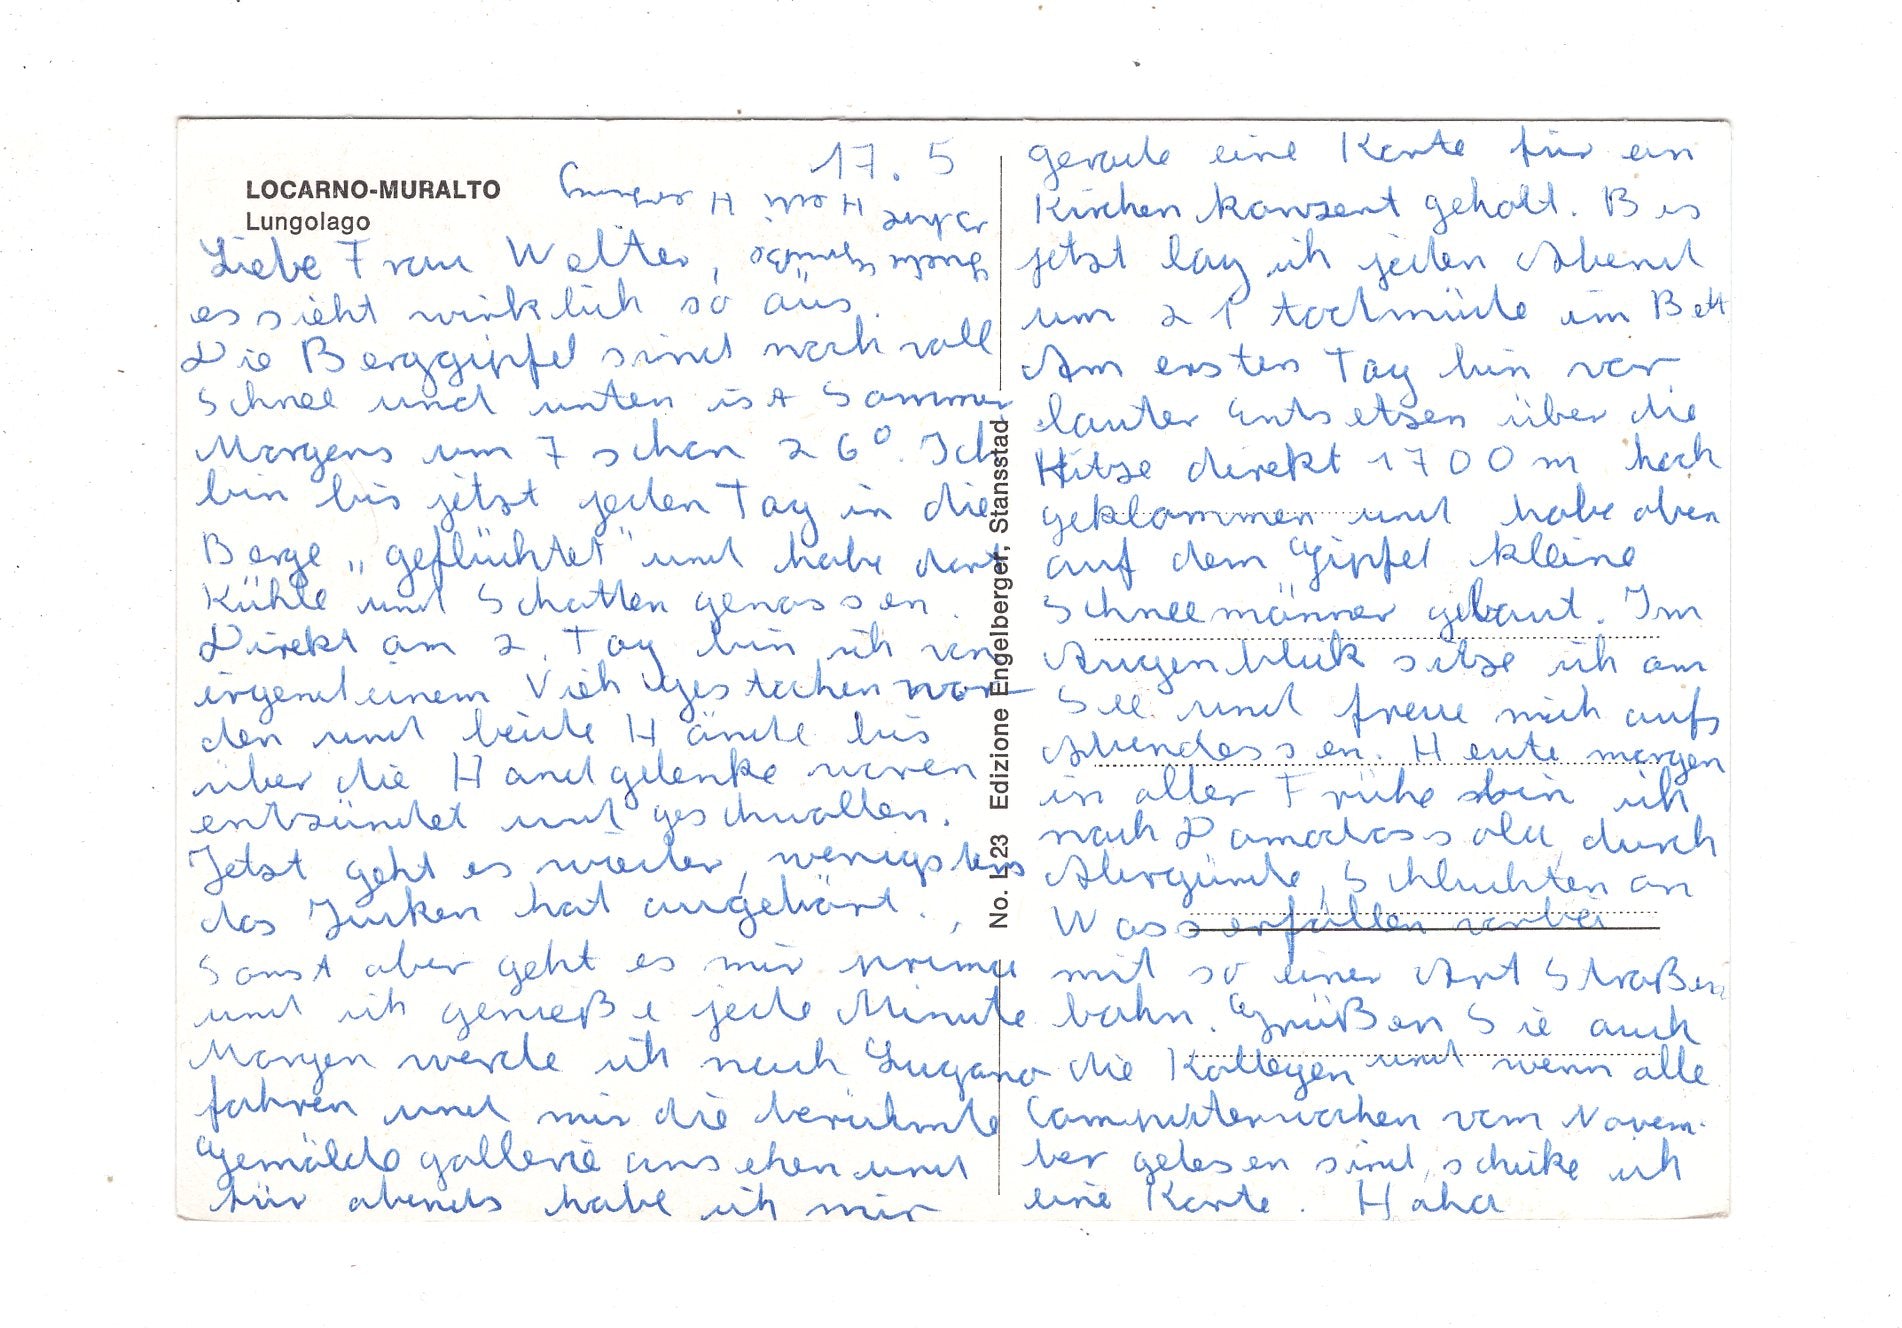 LOCARNO-MURALTO
Lungolago
17. 5
Liebe Frau Welter,
es sieht wirklich so aus.
Die Berggipfel sind noch voll
Schnee und unten ist Sommer
Morgens um 7 schon 26°. Ich
bin bis jetzt jeden Tag in die
Berge „geflüchtet" und habe dort
Kühle und Schatten genossen.
Direkt am 2. Tag bin ich von
irgendeinem Vieh gestochen wor-
den und beide Hände bis
über die Handgelenke waren
entzündet und geschwollen.
Jetzt geht es wieder, wenigstens
das Jucken hat aufgehört.
Sonst aber geht es mir prima
und ich genieße jede Minute
Morgen werde ich nach Lugano
fahren und mir die berühmte
Gemäldegallerie ansehen und
für abends habe ich mir
gerade eine Karte für ein
Kirchenkonzert geholt. Bis
jetzt lag ich jeden Abend
um 21 todmüde im Bett
Am ersten Tag bin vor
lauter Entsetzen über die
Hitze direkt 1700 m hoch
geklommen und habe oben
auf dem Gipfel kleine
Schneemänner gebaut. Im
Augenblick sitze ich am
See und freue mich aufs
Abendessen. Heute morgen
in aller Frühe bin ich
nach Domodossola durch
Abgründe, Schluchten an
Wasserfällen vorbei
mit so einer Art Straßen
bahn. Grüßen Sie auch
die Kollegen und wenn alle
Computerwochen vom Novem-
ber gelesen sind, schicke ich
eine Karte. Haha
Ihre
No. L 23 Edizione Engelberger, Stansstad